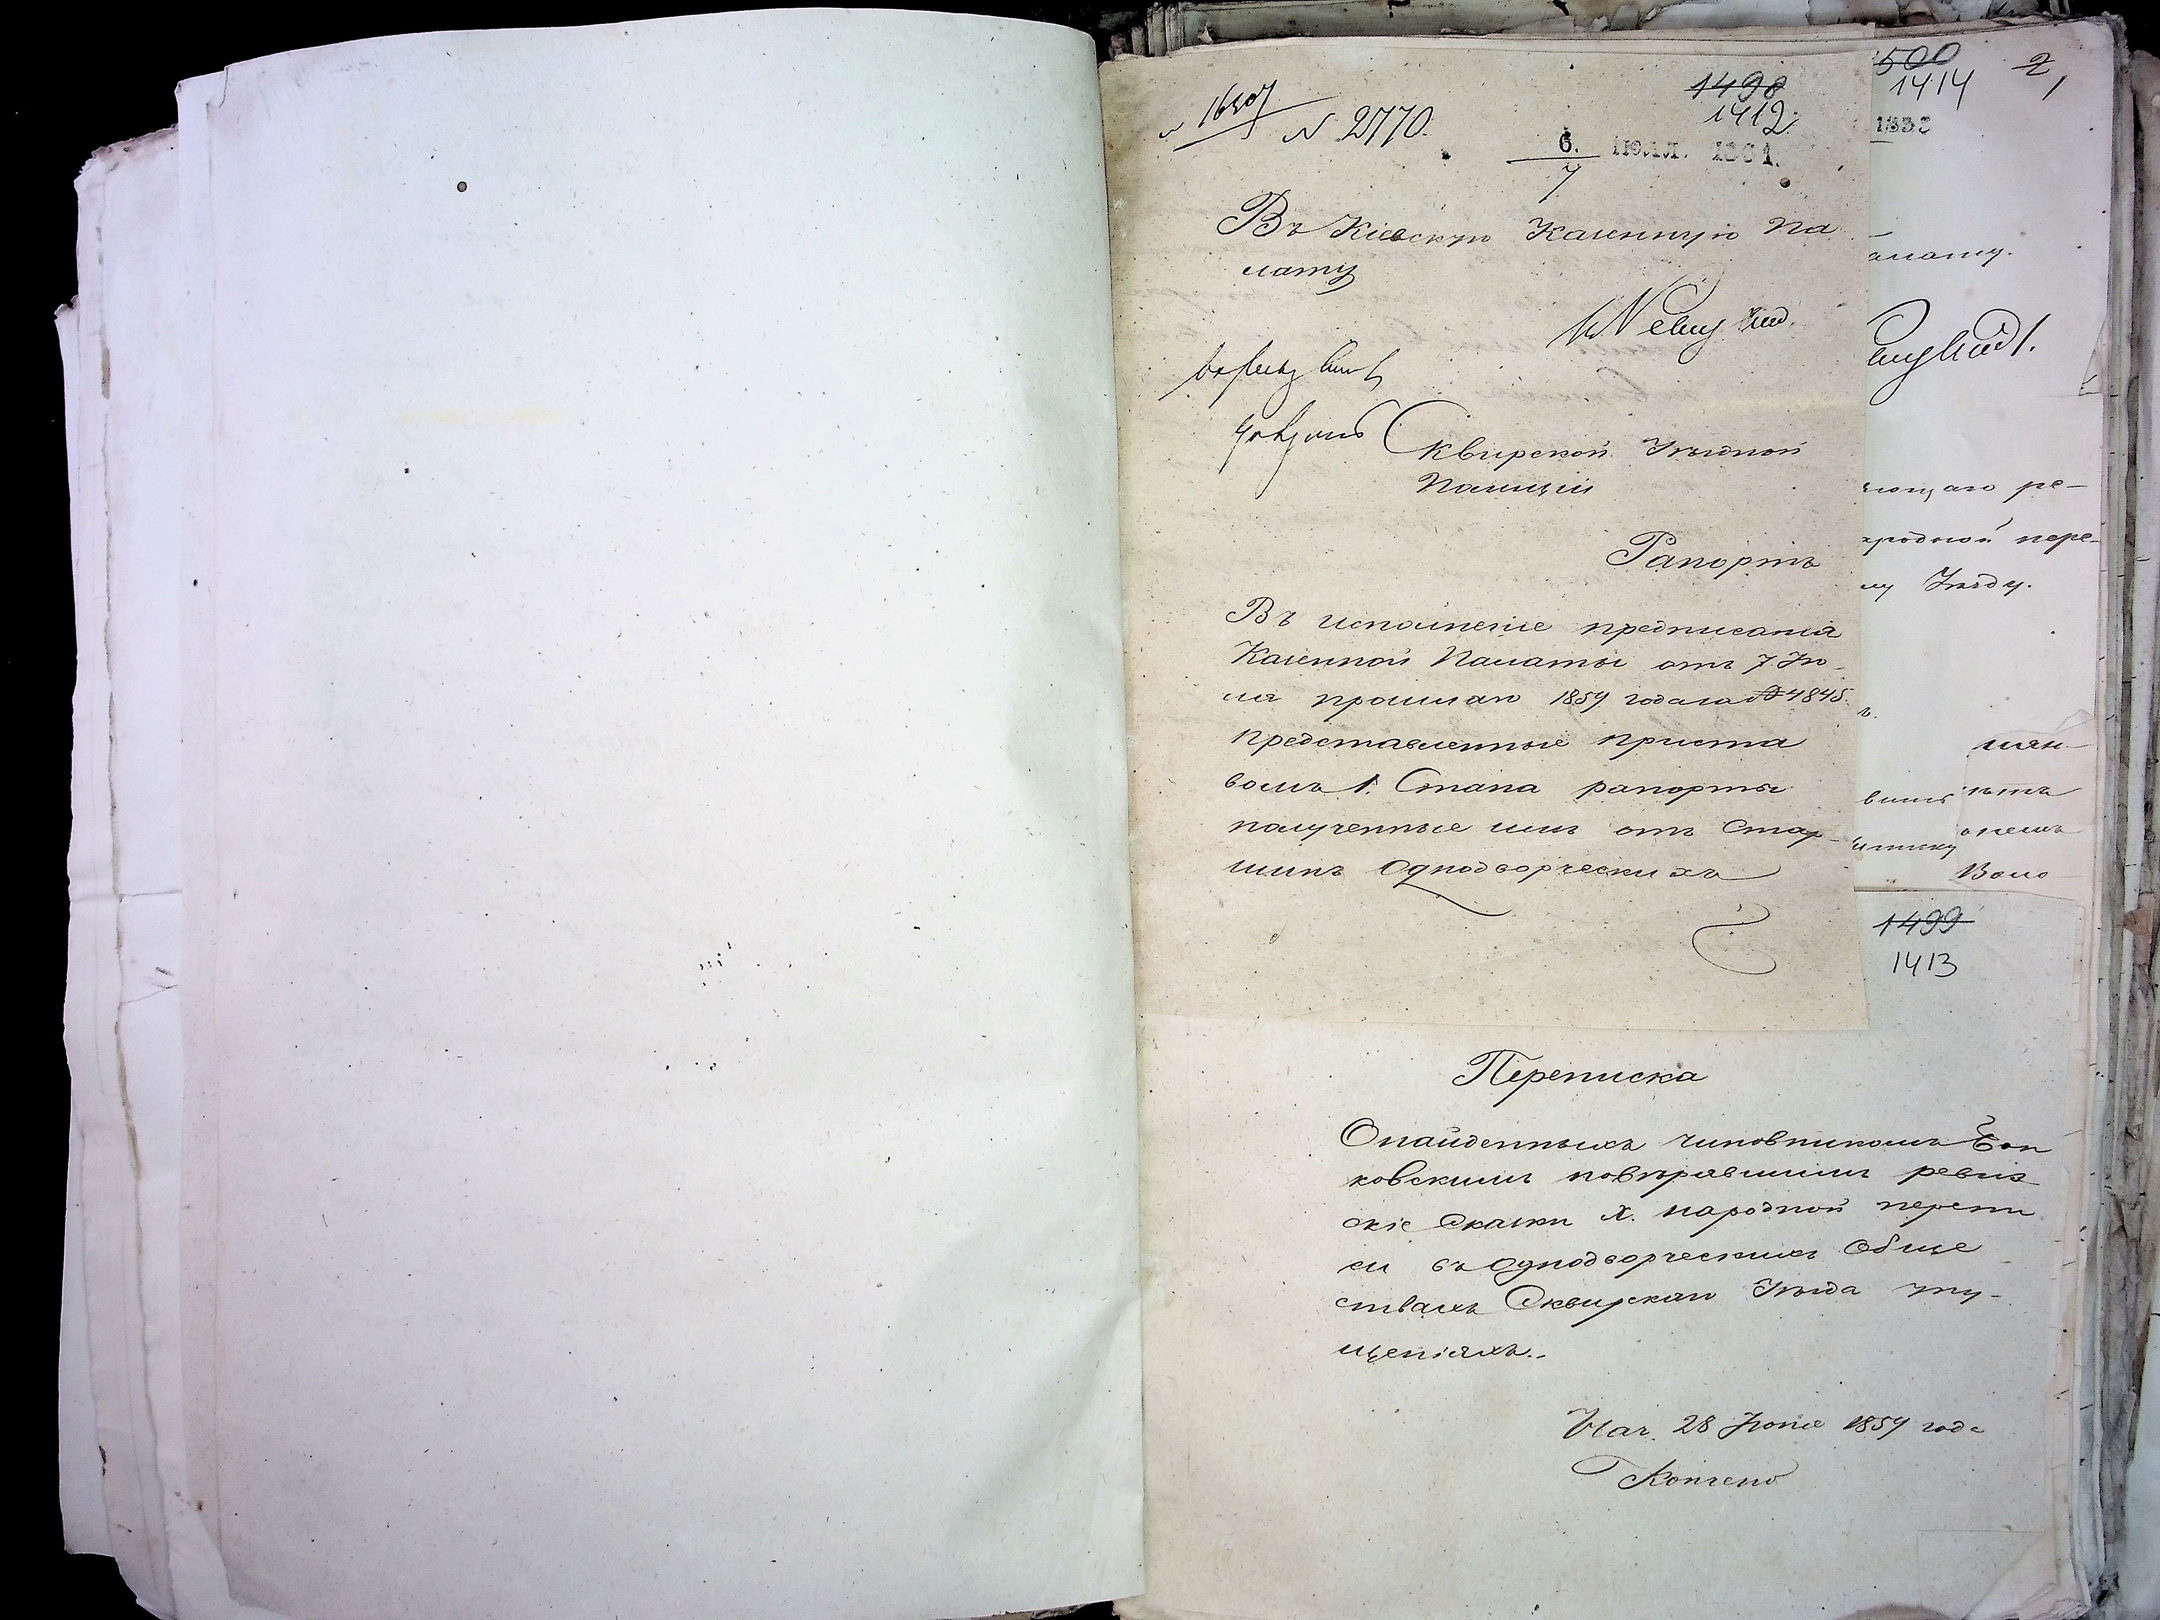 1498
1412
№ 2770.
6. Іюл. 1861.
7
Въ Кіевскую Казенную Па
лату
Сквирской Уѣздной
Полиціи
Рапортъ
Въ исполненіе предписанія
Казенной Палаты отъ 7 Ію-
ля прошлаго 1859 года за № 4845.
представленные приста
вомъ 1. Стана рапорты
полученные имъ отъ Стар-
шинъ Однодворческихъ
500
1414
2
алату.
ющаго ре-
ародной пере-
му Уѣзду.
1499
1413
Переписка
О найденныхъ чиновникомъ
ковскимъ повѣрявшимъ ревиз
скіе сказки X. народной перепи
си въ Однодворческихъ Обще
ствахъ Сквирскаго Уѣзда упу-
щеніяхъ.
Нач. 28 Іюня 1859 года
Кончено